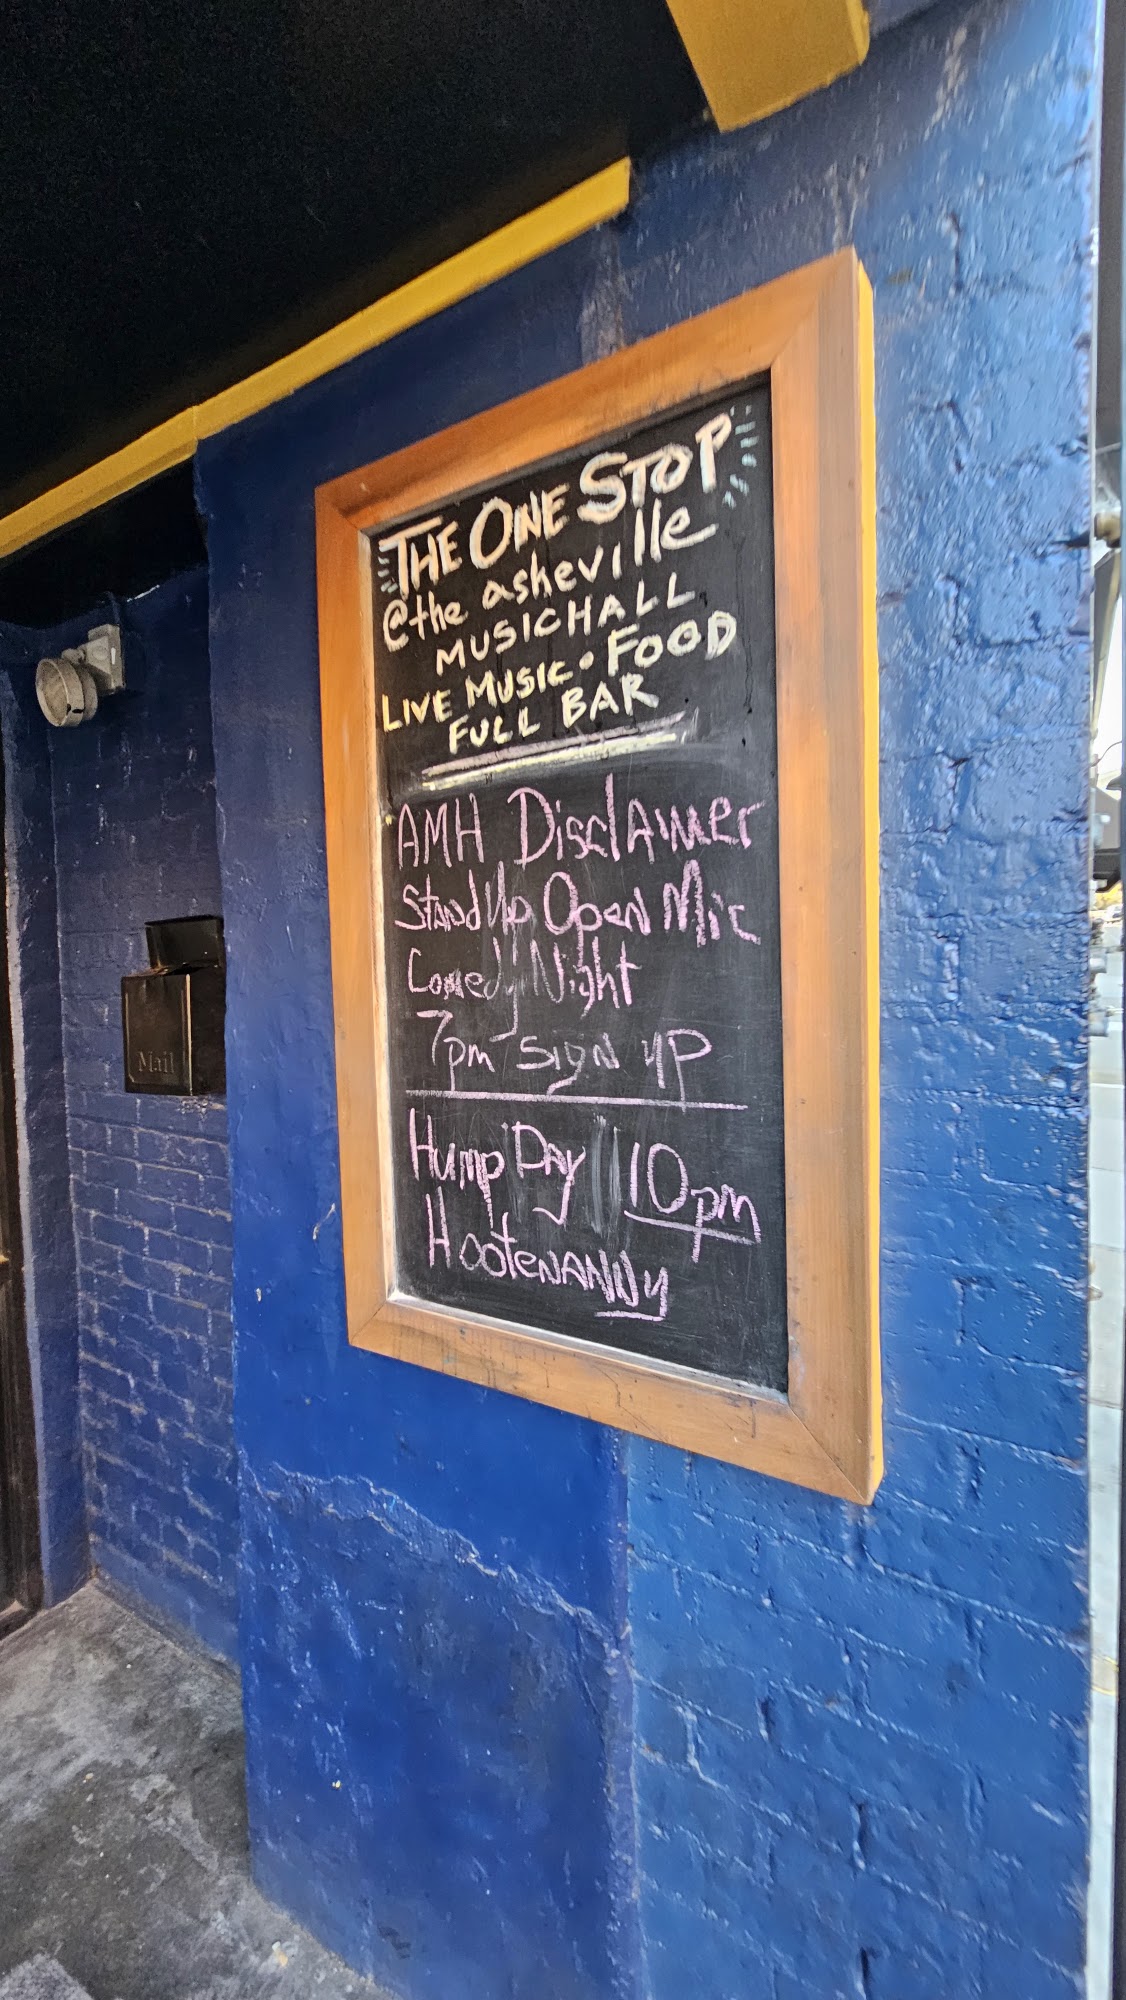 THE ONE STOP
@the asheville
MUSIC HALL
LIVE MUSIC • FOOD
FULL BAR
AMH Disclaimer
Stand Up Open Mic
Comedy Night
7pm sign up
Hump Day 10pm
Hootenanny
Mail